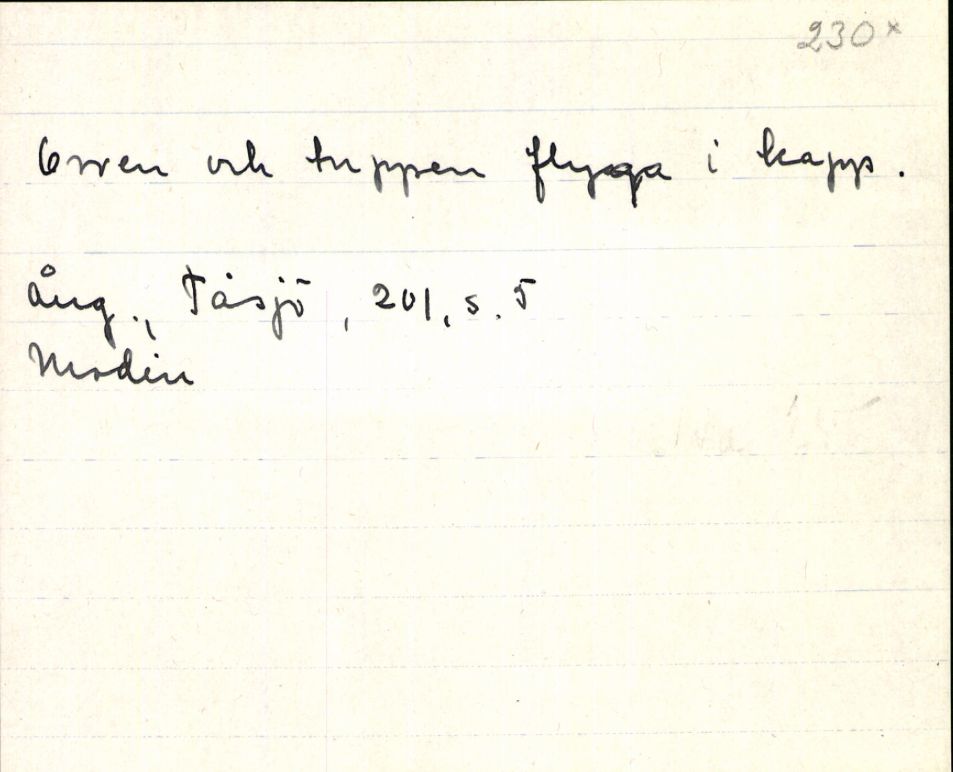 230x
Orren och tuppen flyga i kapp.
Ång., Tåsjö, 201, s. 5
Modin